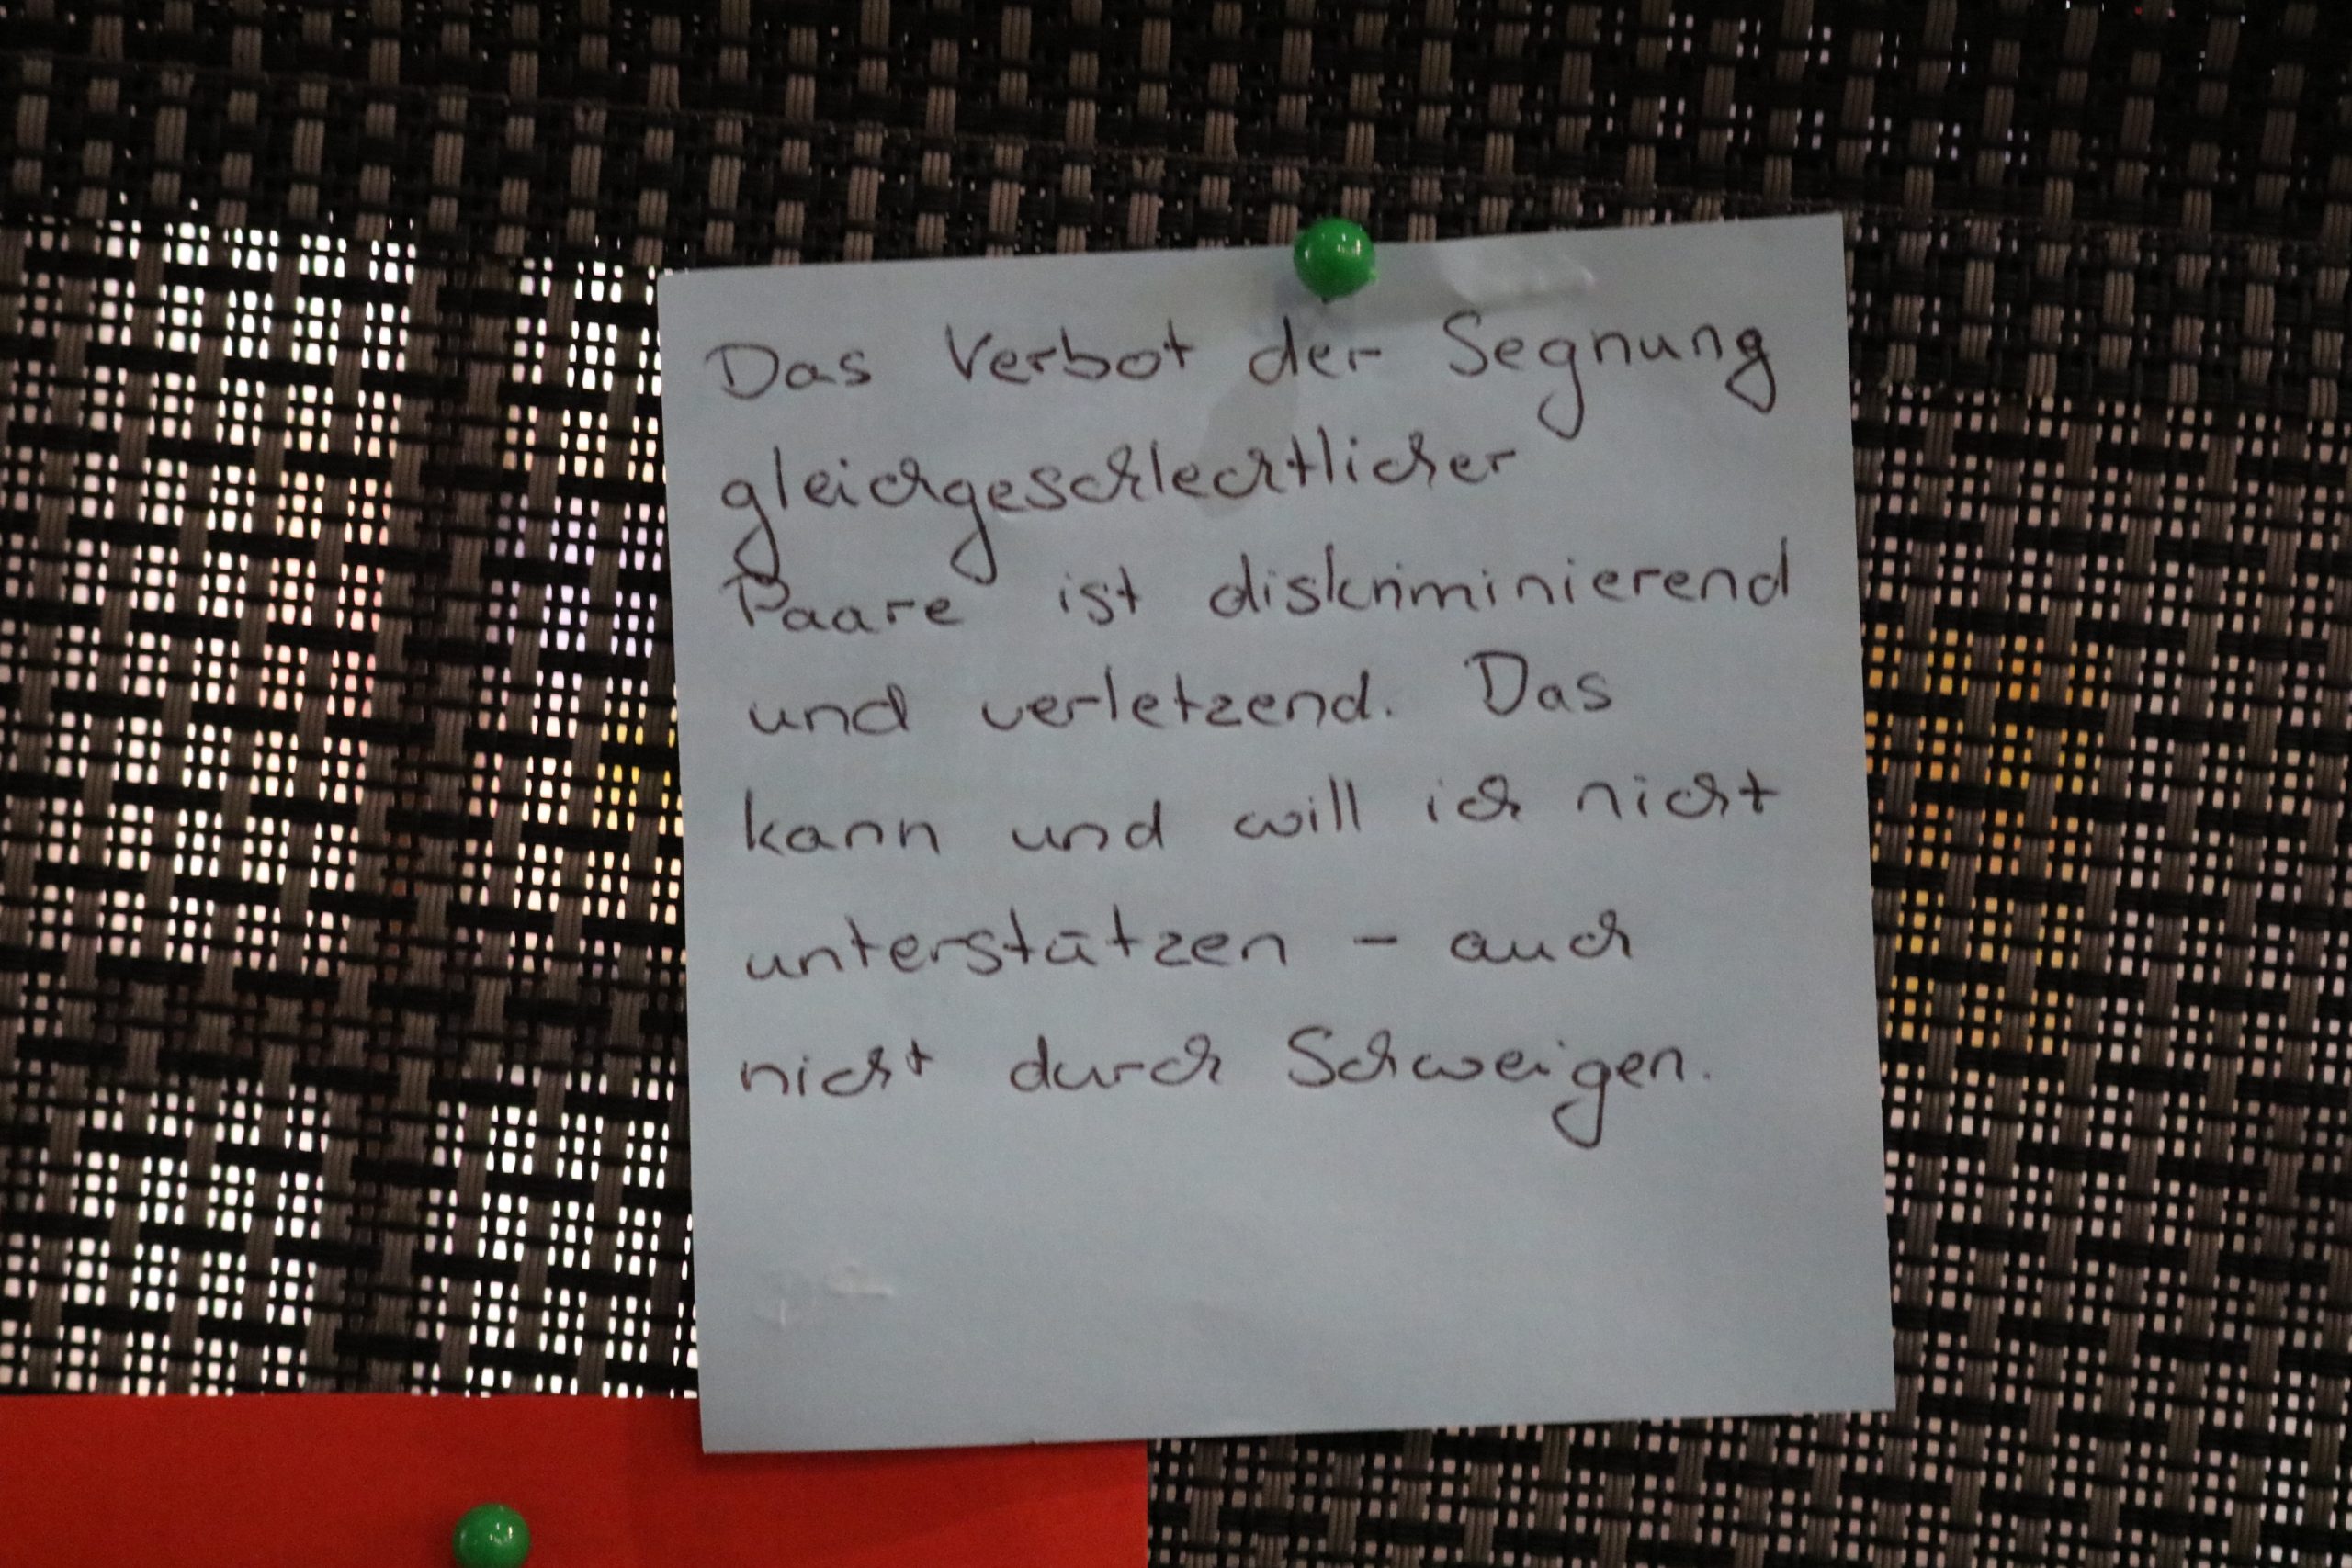 Das Verbot der Segnung
gleichgeschlechtlicher
Paare ist diskriminierend
und verletzend. Das
kann und will ich nicht
unterstützen - auch
nicht durch Schweigen.